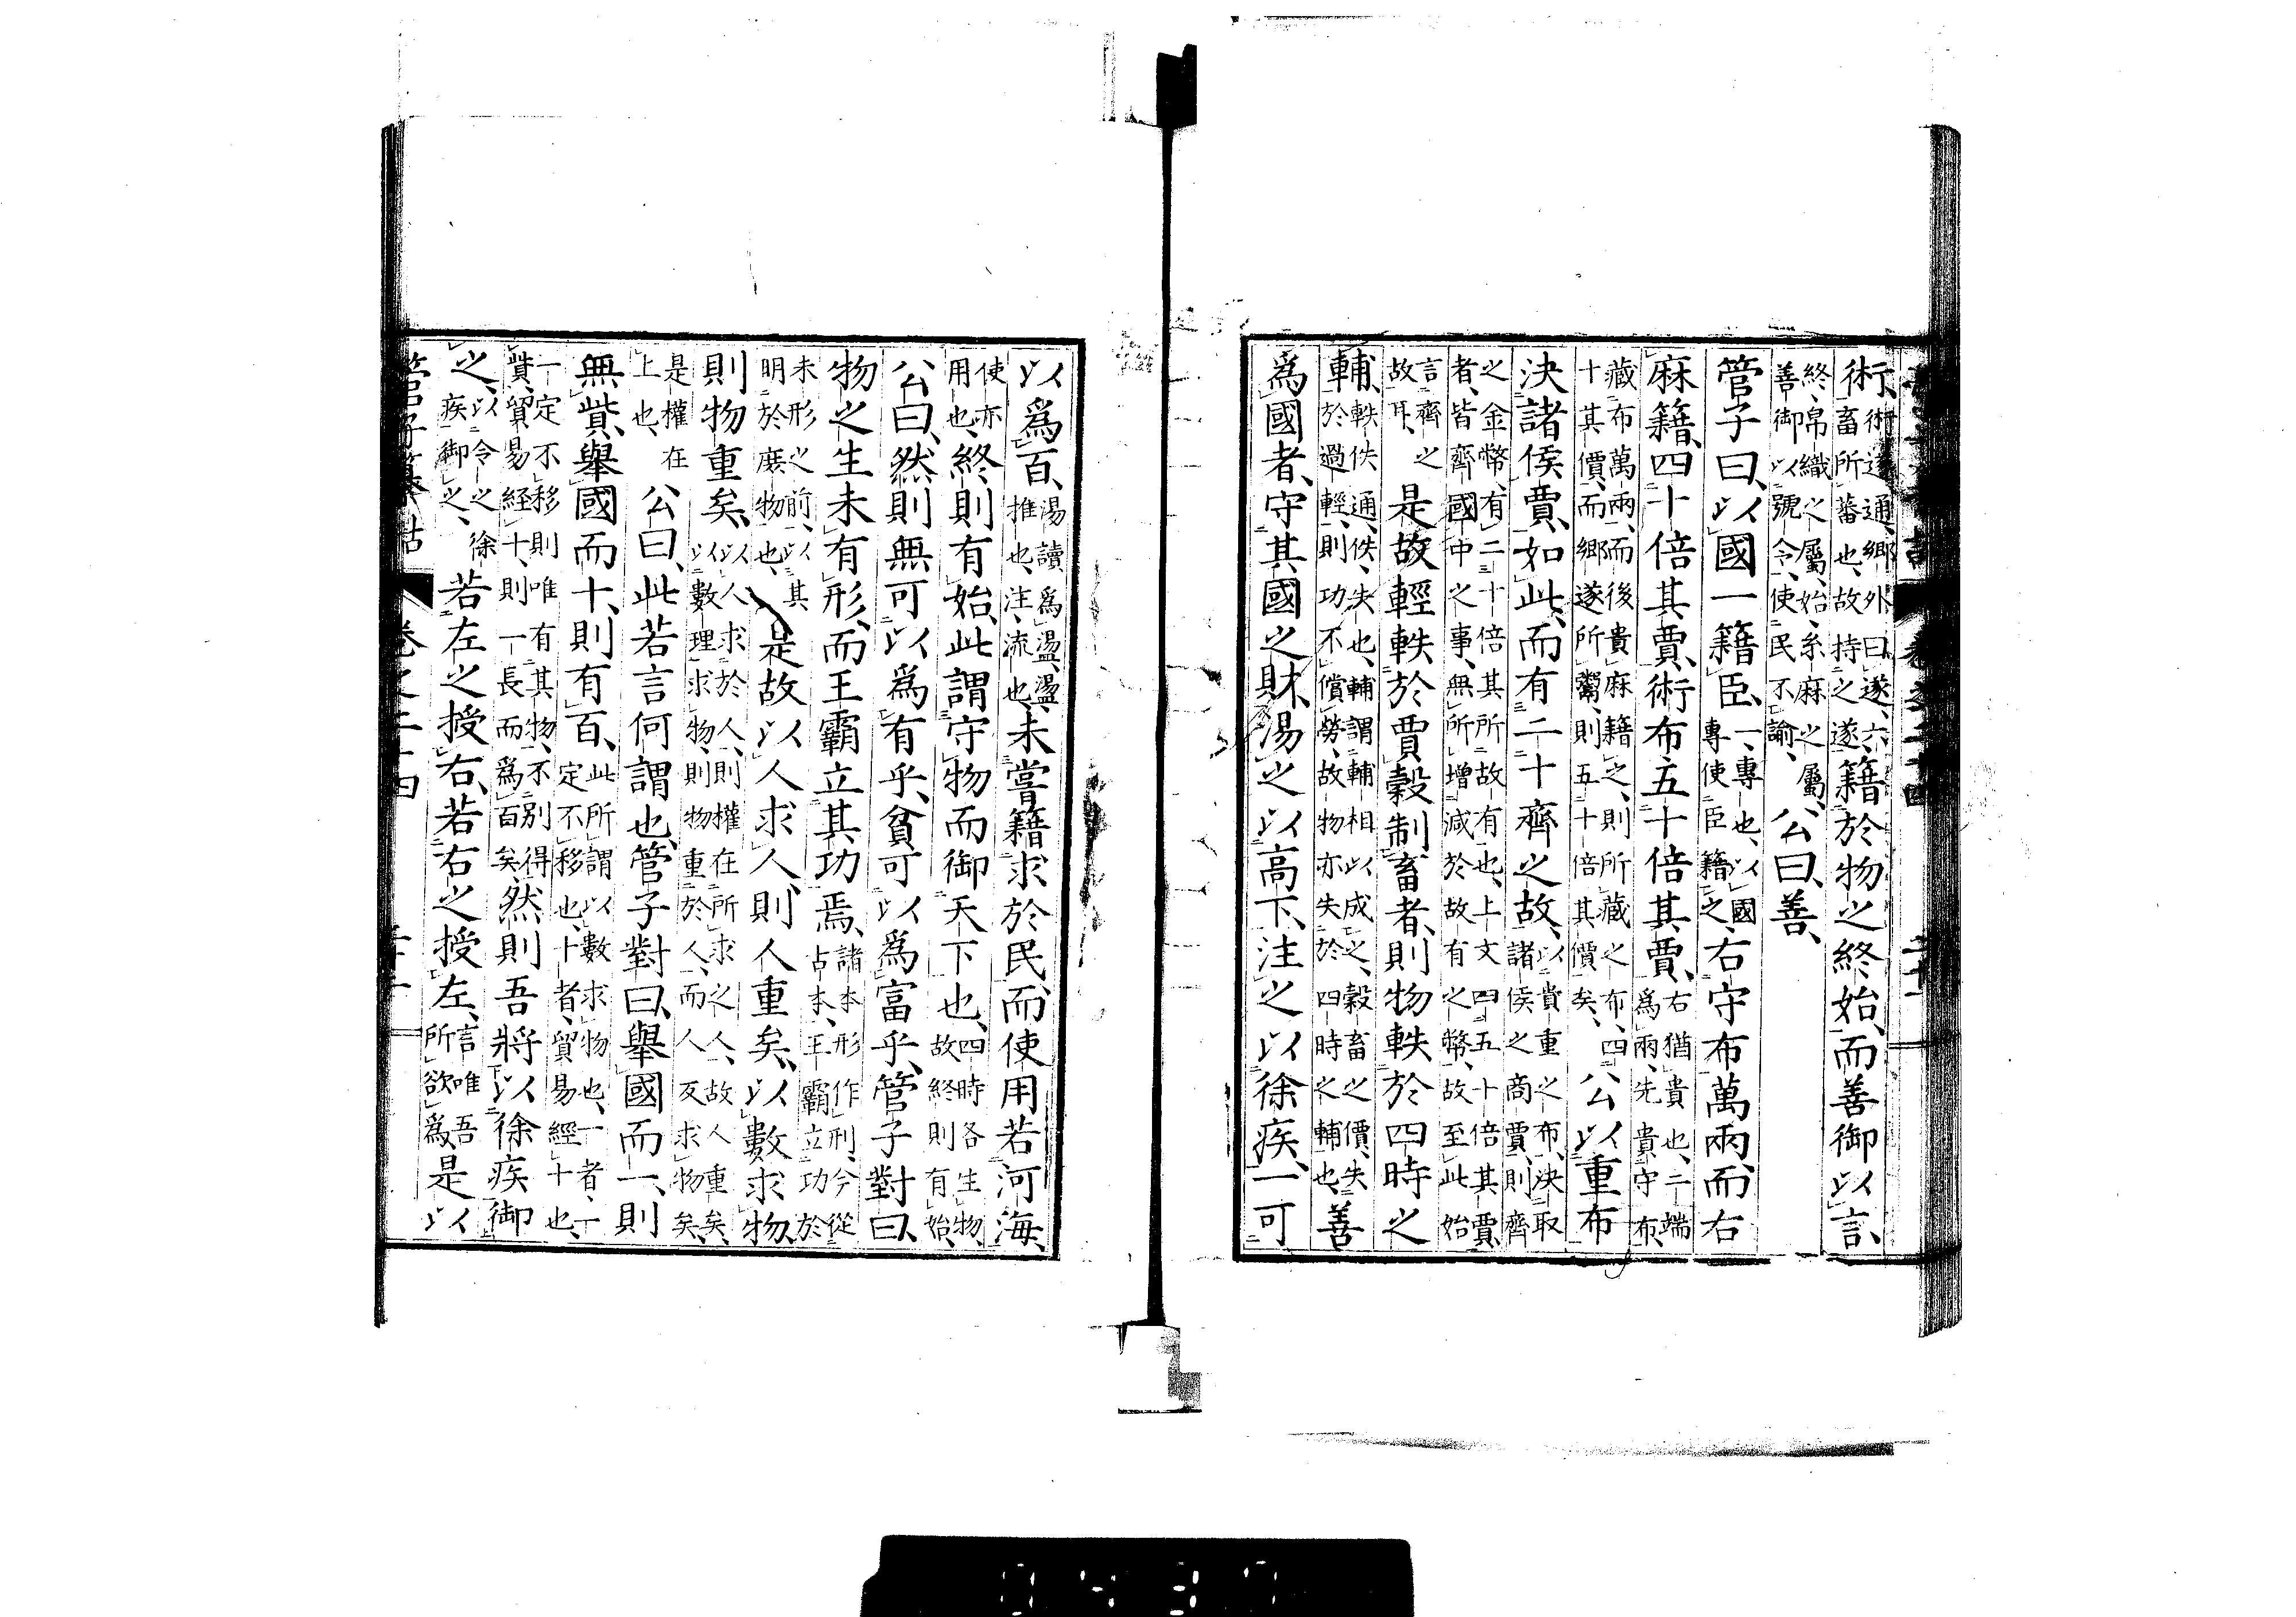 術、術遂通、鄕外曰遂、六畜所蕃也、故持之遂、籍於物之終始、而善御以言、
終、帛織之屬、始、糸麻之屬、善御以號令、使民不諭、公曰、善、
管子曰、以國一籍臣、一、專也、以國專使臣籍之、右守布萬兩、而右
麻籍、四十倍其賈、術布五十倍其賈、右猶貴也、二端爲兩、先貴守布、
藏布萬兩、而後貴麻籍之、則所藏之布、四十其價、而鄕遂所鬻、則五十倍其價矣、公以重布
決諸侯賈、如此、而有二十齊之故、以貴重之布、決取諸侯之商賈、則齊
之金幣、有二十倍其所故有也、上文四五十倍其賈者、皆齊國中之事、無所增減於故有之幣、故至此始
言齊之故耳、是故輕軼於賈穀制畜者、則物軼於四時之
輔、軼佚通、佚、失也、輔謂輔相以成之、穀畜之價、失於過輕、則功不償勞、故物亦失於四時之輔也、善
爲國者、守其國之財、湯之以高下、注之以徐疾、一可
以爲百、湯讀爲盪、盪、推也、注、流也、未嘗籍求於民、而使用若河海、
使亦用也、終則有始、此謂守物而御天下也、四時各生物、故終則有始、
公曰、然則無可以爲有乎、貧可以爲富乎、管子對曰、
物之生未有形、而王霸立其功焉、諸本形作刑、今從古本、王霸立功於
未形之前、以其明於庶物也、是故以人求人、則人重矣、以數求物、
則物重矣、以人求於人、則權在所求之人、故人重矣、以數理求物、則物重於人、而人反求物矣、
是權在上也、公曰、此若言何謂也、管子對曰、舉國而一、則
無貲、舉國而十、則有百、此所謂以數求物也、一者、一定不移也、十者、貿易經十也、
一定不移則唯有其物、不別得貲、貿易経十、則一長而爲百矣、然則吾將以徐疾御
之、以令之徐疾御之、若左之授右、若右之授左、言唯吾所欲爲、是以
管子纂詁 卷之二十四